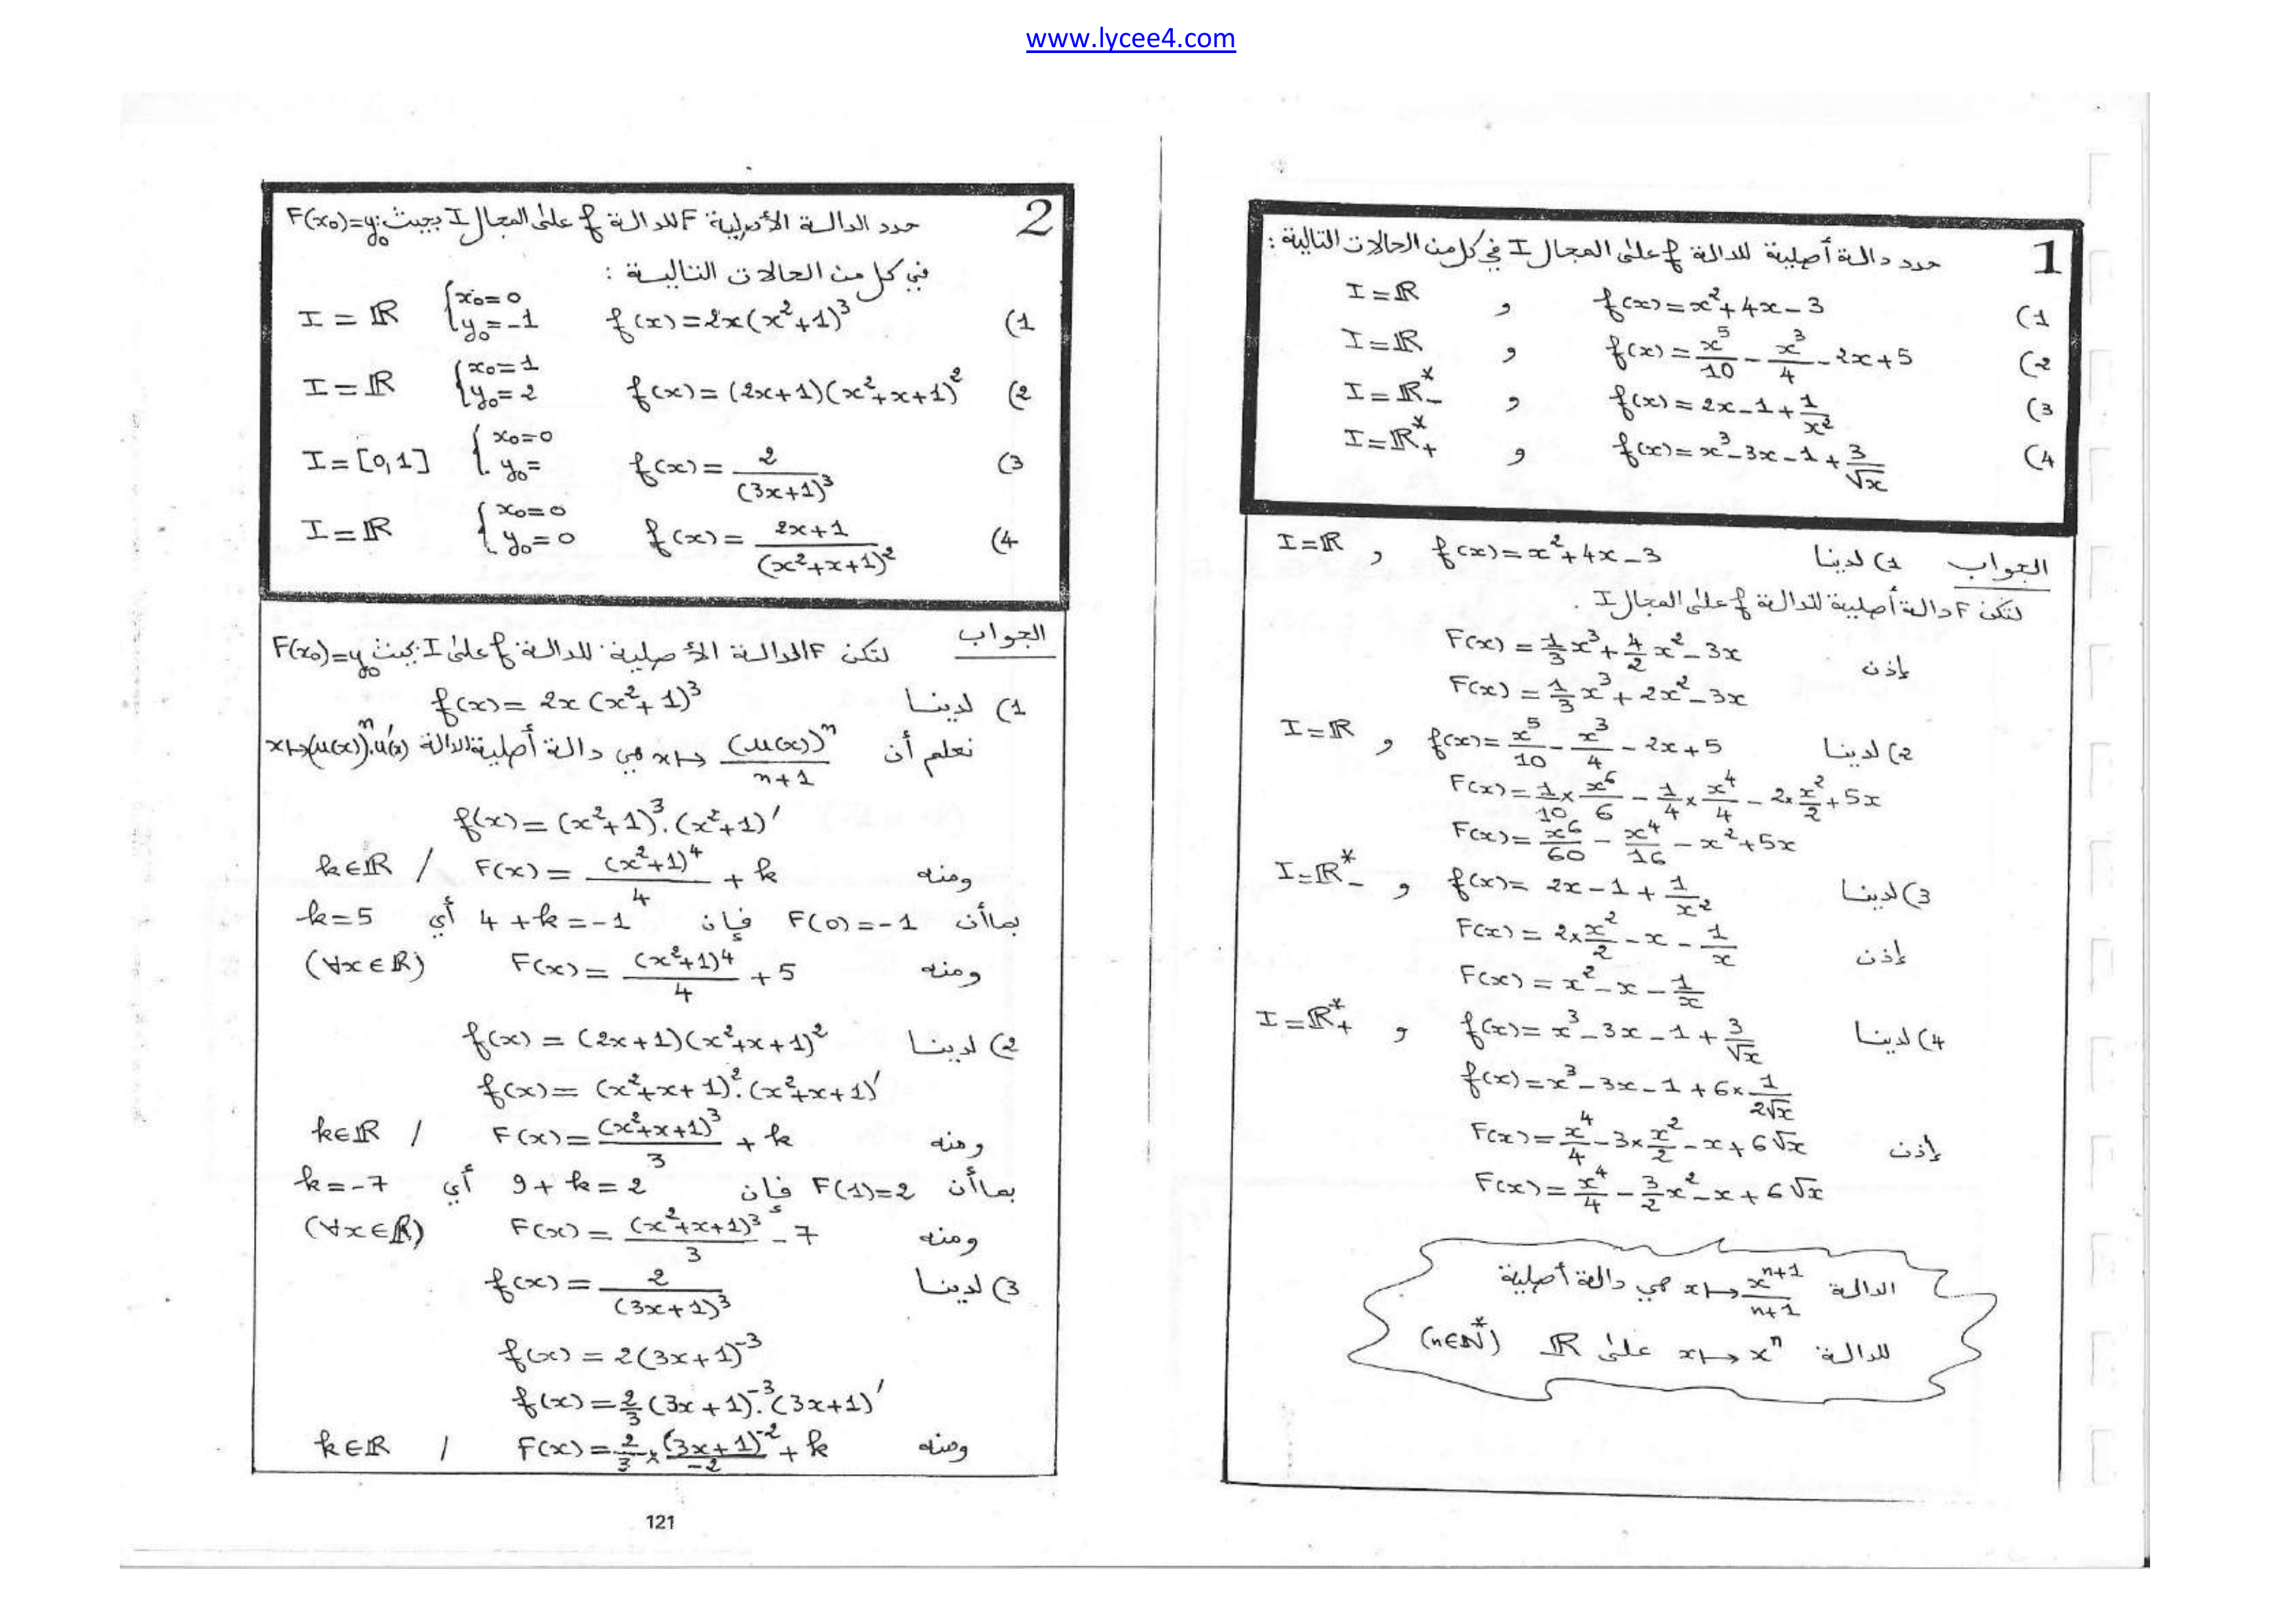 www.lycee4.com
1 حدد دالة أصلية للدالة f على المجال I في كل من الحالات التالية :
1) f(x)=x²+4x-3 , I=ℝ
2) f(x)=x⁵/10 - x³/4 - 2x+5 , I=ℝ
3) f(x)=2x-1+1/x² , I=ℝ*₋
4) f(x)=x³-3x-1+3/√x , I=ℝ*₊
الجواب 1) لدينا f(x)=x²+4x-3 , I=ℝ
لتكن F دالة أصلية للدالة f على المجال I .
إذن F(x)=1/3 x³+4/2 x²-3x
F(x)=1/3 x³+2x²-3x
2) لدينا f(x)=x⁵/10 - x³/4 - 2x+5 , I=ℝ
F(x)=1/10 × x⁶/6 - 1/4 × x⁴/4 - 2× x²/2 + 5x
F(x)=x⁶/60 - x⁴/16 - x²+5x
3) لدينا f(x)=2x-1+1/x² , I=ℝ*₋
إذن F(x)=2× x²/2 - x - 1/x
F(x)=x²-x-1/x
4) لدينا f(x)=x³-3x-1+3/√x , I=ℝ*₊
f(x)=x³-3x-1+6× 1/2√x
إذن F(x)=x⁴/4 - 3× x²/2 - x+6√x
F(x)=x⁴/4 - 3/2 x²-x+6√x
الدالة x↦xⁿ⁺¹/n+1 هي دالة أصلية
للدالة x↦xⁿ على ℝ (n∈ℕ*)
2 حدد الدالة الأصلية F للدالة f على المجال I بحيث: F(x₀)=y₀
في كل من الحالات التالية :
1) f(x)=2x(x²+1)³ {x₀=0 y₀=-1 I=ℝ
2) f(x)=(2x+1)(x²+x+1)² {x₀=1 y₀=2 I=ℝ
3) f(x)=2/(3x+1)³ {x₀=0 y₀= I=[0,1]
4) f(x)=2x+1/(x²+x+1)² {x₀=0 y₀=0 I=ℝ
الجواب لتكن F الدالة الأصلية للدالة f على I بحيث F(x₀)=y₀
1) لدينا f(x)=2x(x²+1)³
نعلم أن x↦(u(x))ⁿ/n+1 هي دالة أصلية للدالة x↦(u(x))ⁿ.u'(x)
f(x)=(x²+1)³.(x²+1)'
ومنه F(x)=(x²+1)⁴/4 + k / k∈ℝ
بما أن F(0)=-1 فإن 4+k=-1 أي k=5
ومنه F(x)=(x²+1)⁴/4 + 5 (∀x∈ℝ)
2) لدينا f(x)=(2x+1)(x²+x+1)²
f(x)=(x²+x+1)².(x²+x+1)'
ومنه F(x)=(x²+x+1)³/3 + k / k∈ℝ
بما أن F(1)=2 فإن 9+k=2 أي k=-7
ومنه F(x)=(x²+x+1)³/3 - 7 (∀x∈ℝ)
3) لدينا f(x)=2/(3x+1)³
f(x)=2(3x+1)⁻³
f(x)=2/3 (3x+1)⁻³.(3x+1)'
ومنه F(x)=2/3 × (3x+1)⁻²/-2 + k / k∈ℝ
121